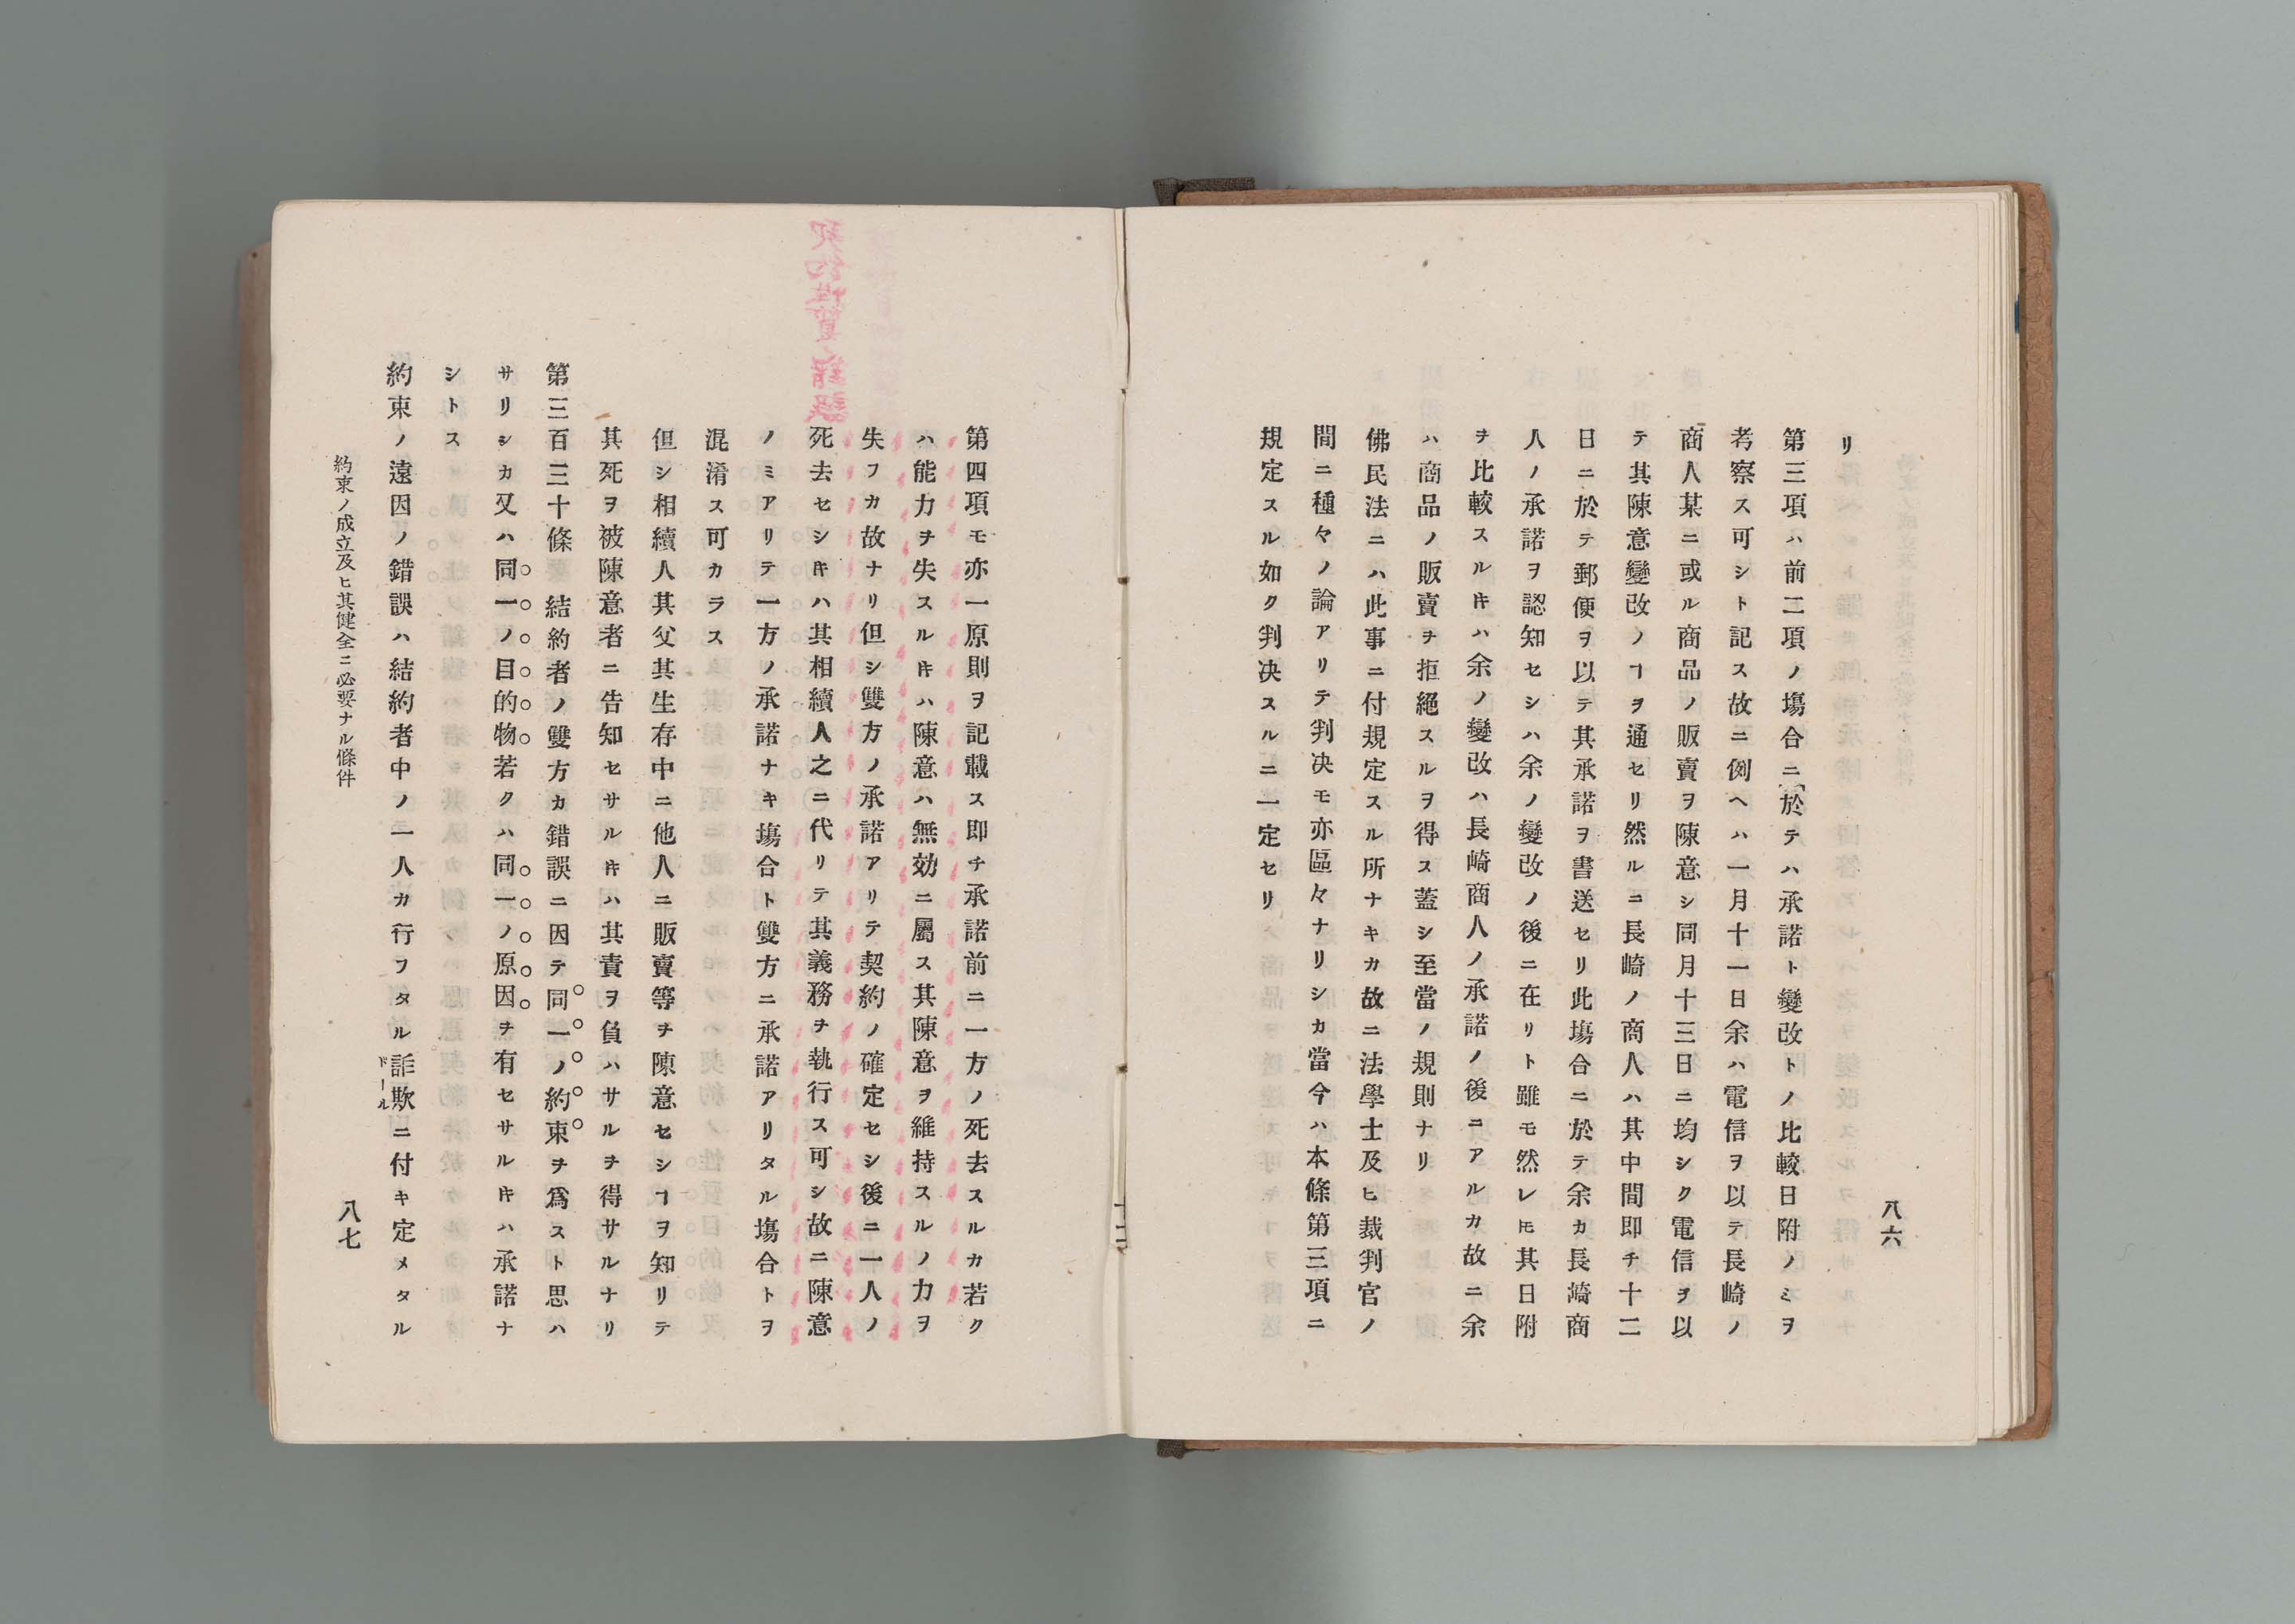 リ
第三項ハ前二項ノ塲合ニ於テハ承諾ト變改トノ比較日附ノミヲ
考察ス可シト記ス故ニ例ヘハ一月十一日余ハ電信ヲ以テ長崎ノ
商人某ニ或ル商品ノ販賣ヲ陳意シ同月十三日ニ均シク電信ヲ以
テ其陳意變改ノヿヲ通セリ然ルニ長崎ノ商人ハ其中間即チ十二
日ニ於テ郵便ヲ以テ其承諾ヲ書送セリ此塲合ニ於テ余カ長崎商
人ノ承諾ヲ認知セシハ余ノ變改ノ後ニ在リト雖モ然レ𪜈其日附
ヲ比較スルキハ余ノ變改ハ長崎商人ノ承諾ノ後ニアルカ故ニ余
ハ商品ノ販賣ヲ拒絕スルヲ得ス蓋シ至當ノ規則ナリ
佛民法ニハ此事ニ付規定スル所ナキカ故ニ法學士及ヒ裁判官ノ
間ニ種々ノ論アリテ判决モ亦區々ナリシカ當今ハ本條第三項ニ
規定スル如ク判决スルニ一定セリ
八六
契約性質ノ錯誤
第四項モ亦一原則ヲ記載ス即チ承諾前ニ一方ノ死去スルカ若ク
ハ能力ヲ失スルキハ陳意ハ無効ニ屬ス其陳意ヲ維持スルノ力ヲ
失フカ故ナリ但シ雙方ノ承諾アリテ契約ノ確定セシ後ニ一人ノ
死去セシキハ其相續人之ニ代リテ其義務ヲ執行ス可シ故ニ陳意
ノミアリテ一方ノ承諾ナキ塲合ト雙方ニ承諾アリタル塲合トヲ
混淆ス可カラス
但シ相續人其父其生存中ニ他人ニ販賣等ヲ陳意セシヿヲ知リテ
其死ヲ被陳意者ニ告知セサルキハ其責ヲ負ハサルヲ得サルナリ
第三百三十條 結約者ノ雙方カ錯誤ニ因テ同一ノ約束ヲ爲スト思ハ
サリシカ又ハ同一ノ目的物若クハ同一ノ原因ヲ有セサルキハ承諾ナ
シトス
約束ノ遠因ノ錯誤ハ結約者中ノ一人カ行フタル詐欺ドールニ付キ定メタル
約束ノ成立及ヒ其健全ニ必要ナル條件
八七